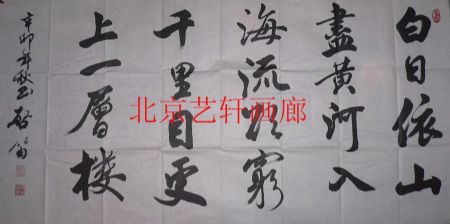 白日依山
盡黄河入
海流欲窮
千里目更
上一層楼
辛卯年
北京艺轩画廊